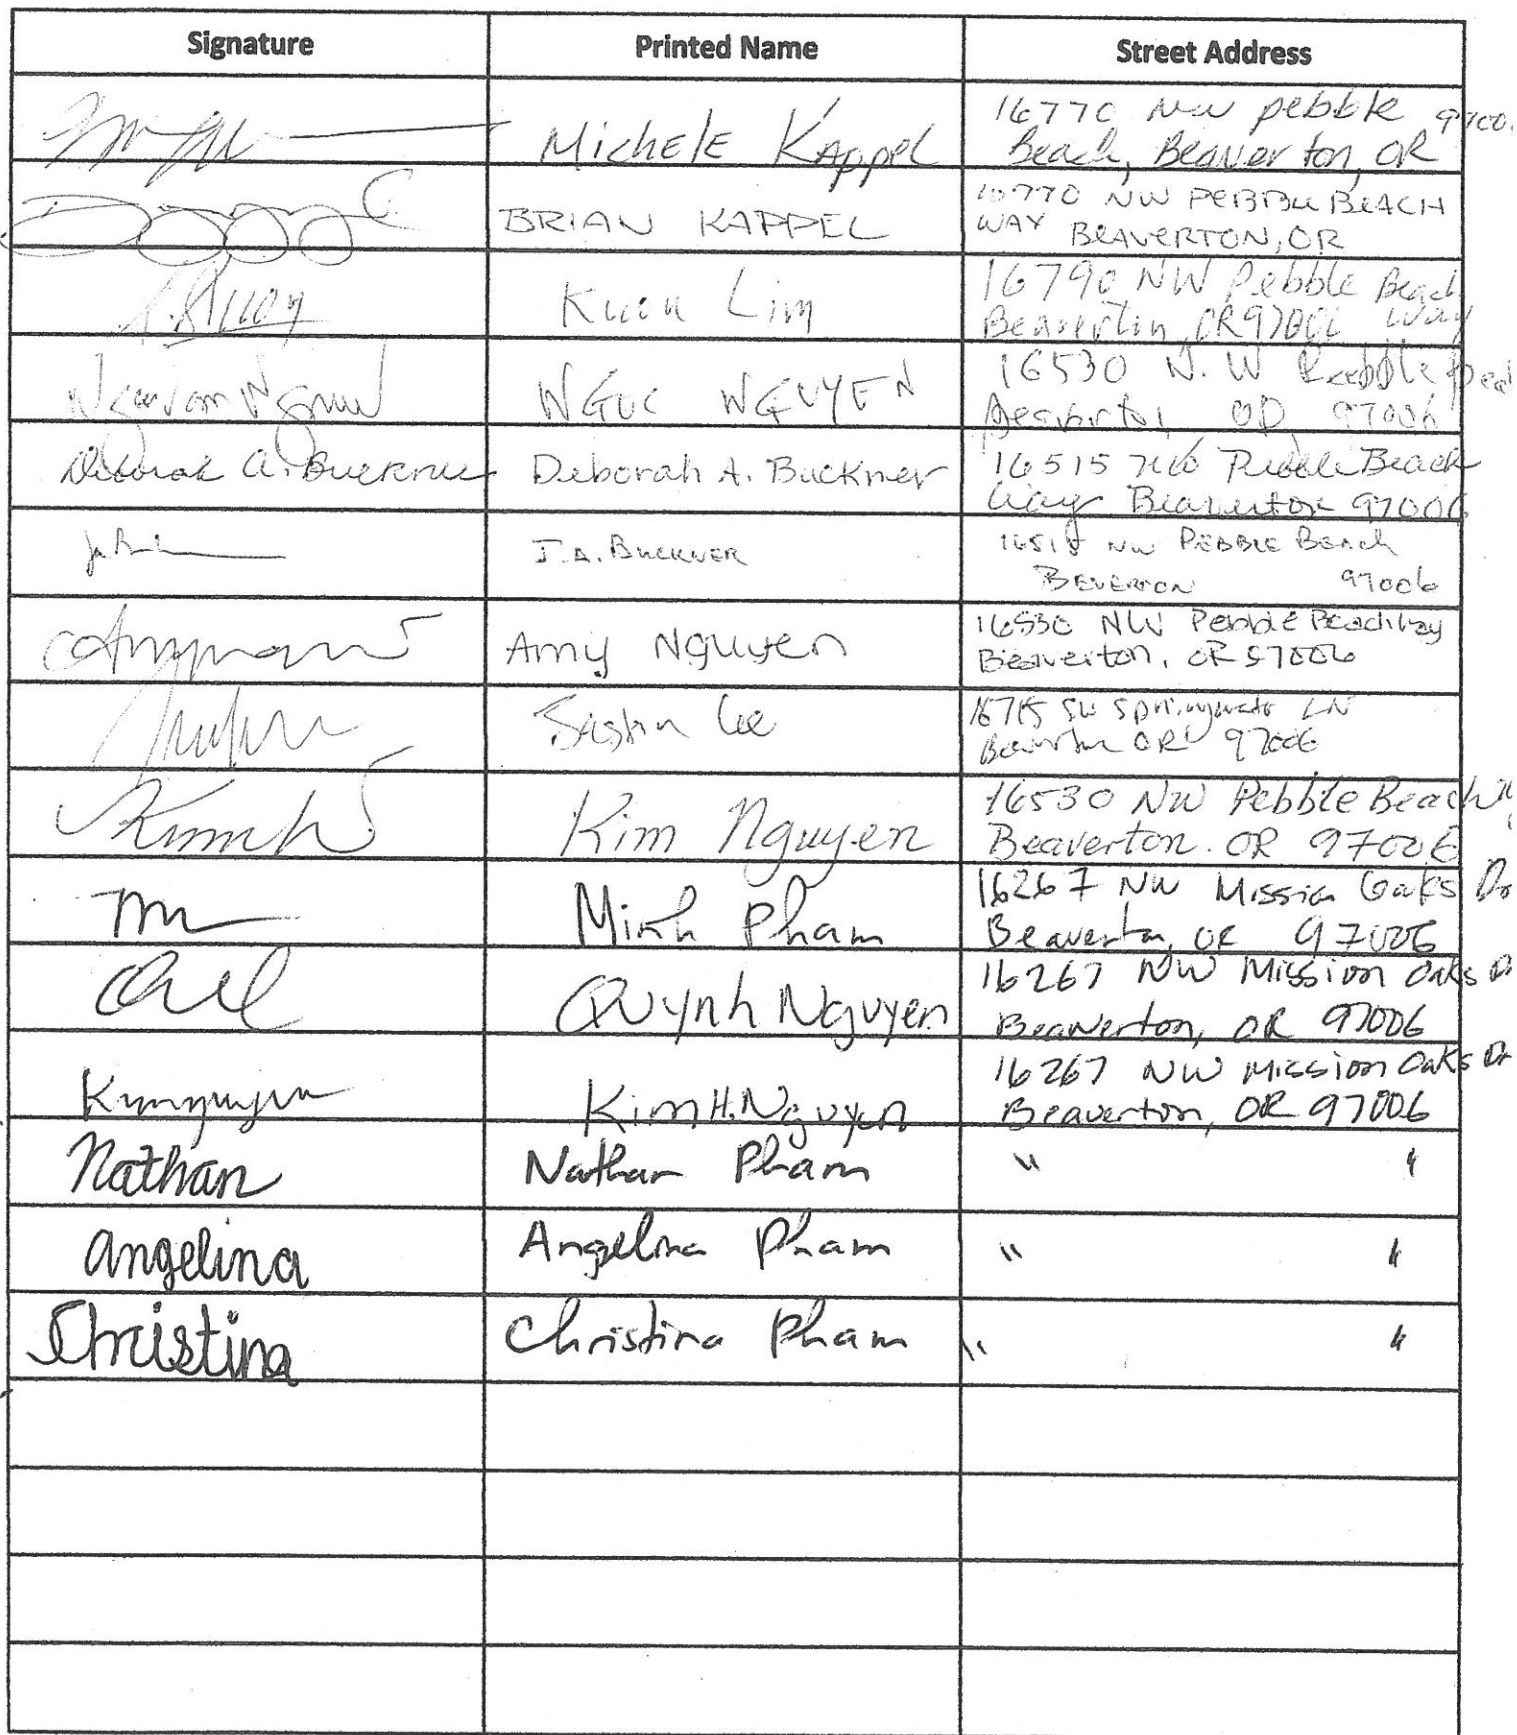 Signature Printed Name Street Address
Michele Kappel 16770 NW pebble
Beach, Beaverton, OR
BRIAN KAPPEL 16770 NW PEBBLE BEACH
WAY BEAVERTON, OR
Lim 16790 NW Pebble Beach
Beaverton, OR 97006 Way
NGUYEN 16530 N.W
97006
Deborah A. Buckner Deborah A. Buckner 16515 NW Pebble Beach
Way Beaverton 97006
J.A. BUCKNER NW PEBBLE BEACH
BEVERTON 97006
Amy Nguyen 16530 NW Pebble Beach Way
Beaverton, OR 97006
Lee SW LN
OR 97006
Kim Nguyen 16530 NW Pebble Beach
Beaverton. OR 97006
Minh Pham 16267 NW Mission Oaks Dr
Beaverton, OR 97006
Quynh Nguyen 16267 NW Mission Oaks D
Beaverton, OR 97006
Kim H. Nguyen 16267 NW Mission Oaks Dr
Beaverton, OR 97006
Nathan Nathan Pham " "
Angelina Angelina Pham " "
Christina Christina Pham " "